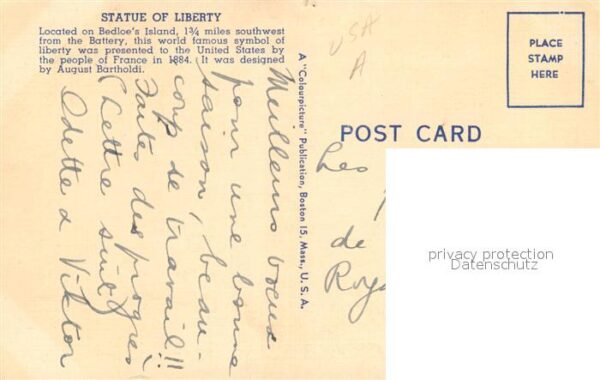 STATUE OF LIBERTY
Located on Bedloe's Island, 1¾ miles southwest
from the Battery, this world famous symbol of
liberty was presented to the United States by
the people of France in 1884. It was designed
by August Bartholdi.
Meilleurs voeux
pour une bonne
saison, beau-
coup de travail!!
Faites des progrès
(Lettre suit)
Odette & Viktor
A "Colourpicture" Publication, Boston 15, Mass., U. S. A.
USA
A
PLACE
STAMP
HERE
POST CARD
Les
de
privacy protection
Datenschutz